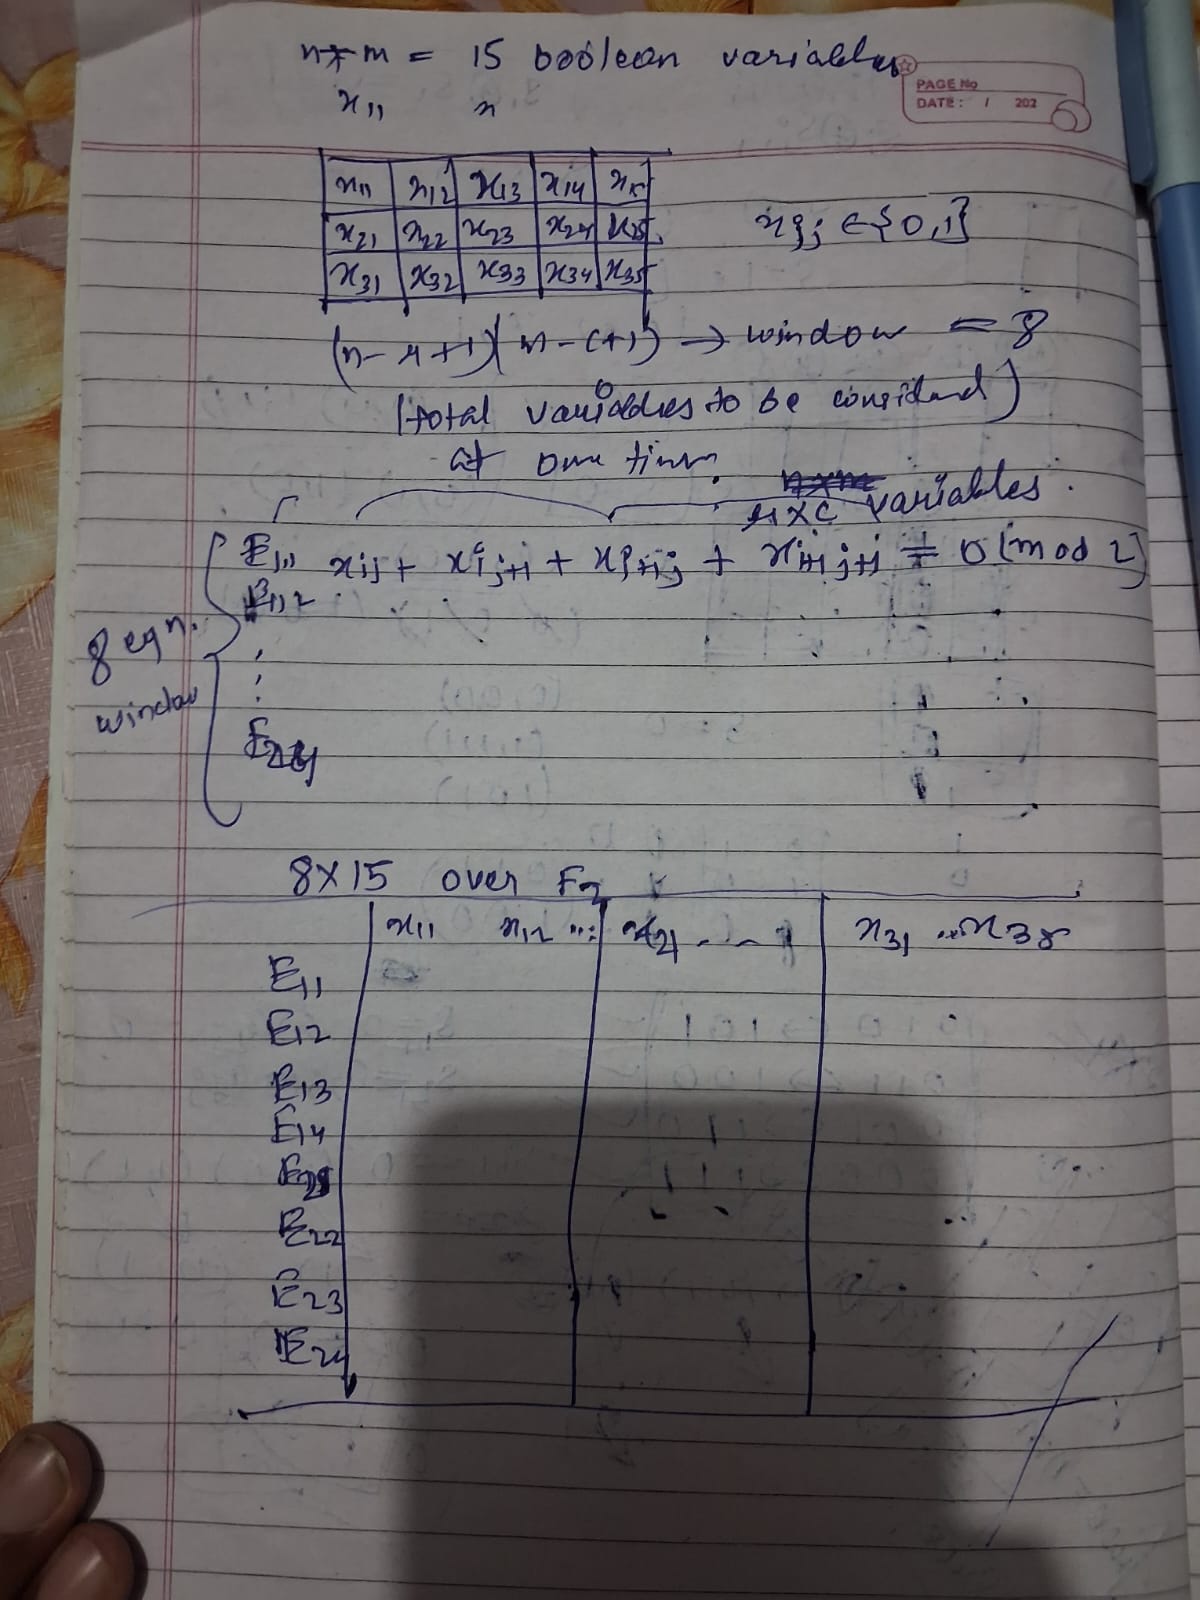 n * m = 15 boolean variables
PAGE No
DATE: / 202
x11 x
x11 x12 x13 x14 x15
x21 x22 x23 x24 x25
x31 x32 x33 x34 x35
xij ∈ {0,1}
(n-r+1)(m-c+1) → window = 8
(total variables to be considered)
at one time
r×c variables.
E1,1 xij + xi,j+1 + xi+1,j + xi+1,j+1 = 0 (mod 2)
E1,2
:
8 eqn.
window
E24
8×15 over F2
x11 x12 ... x21 - - - x31 ... x35
E11
E12
E13
E14
E21
E22
E23
E24